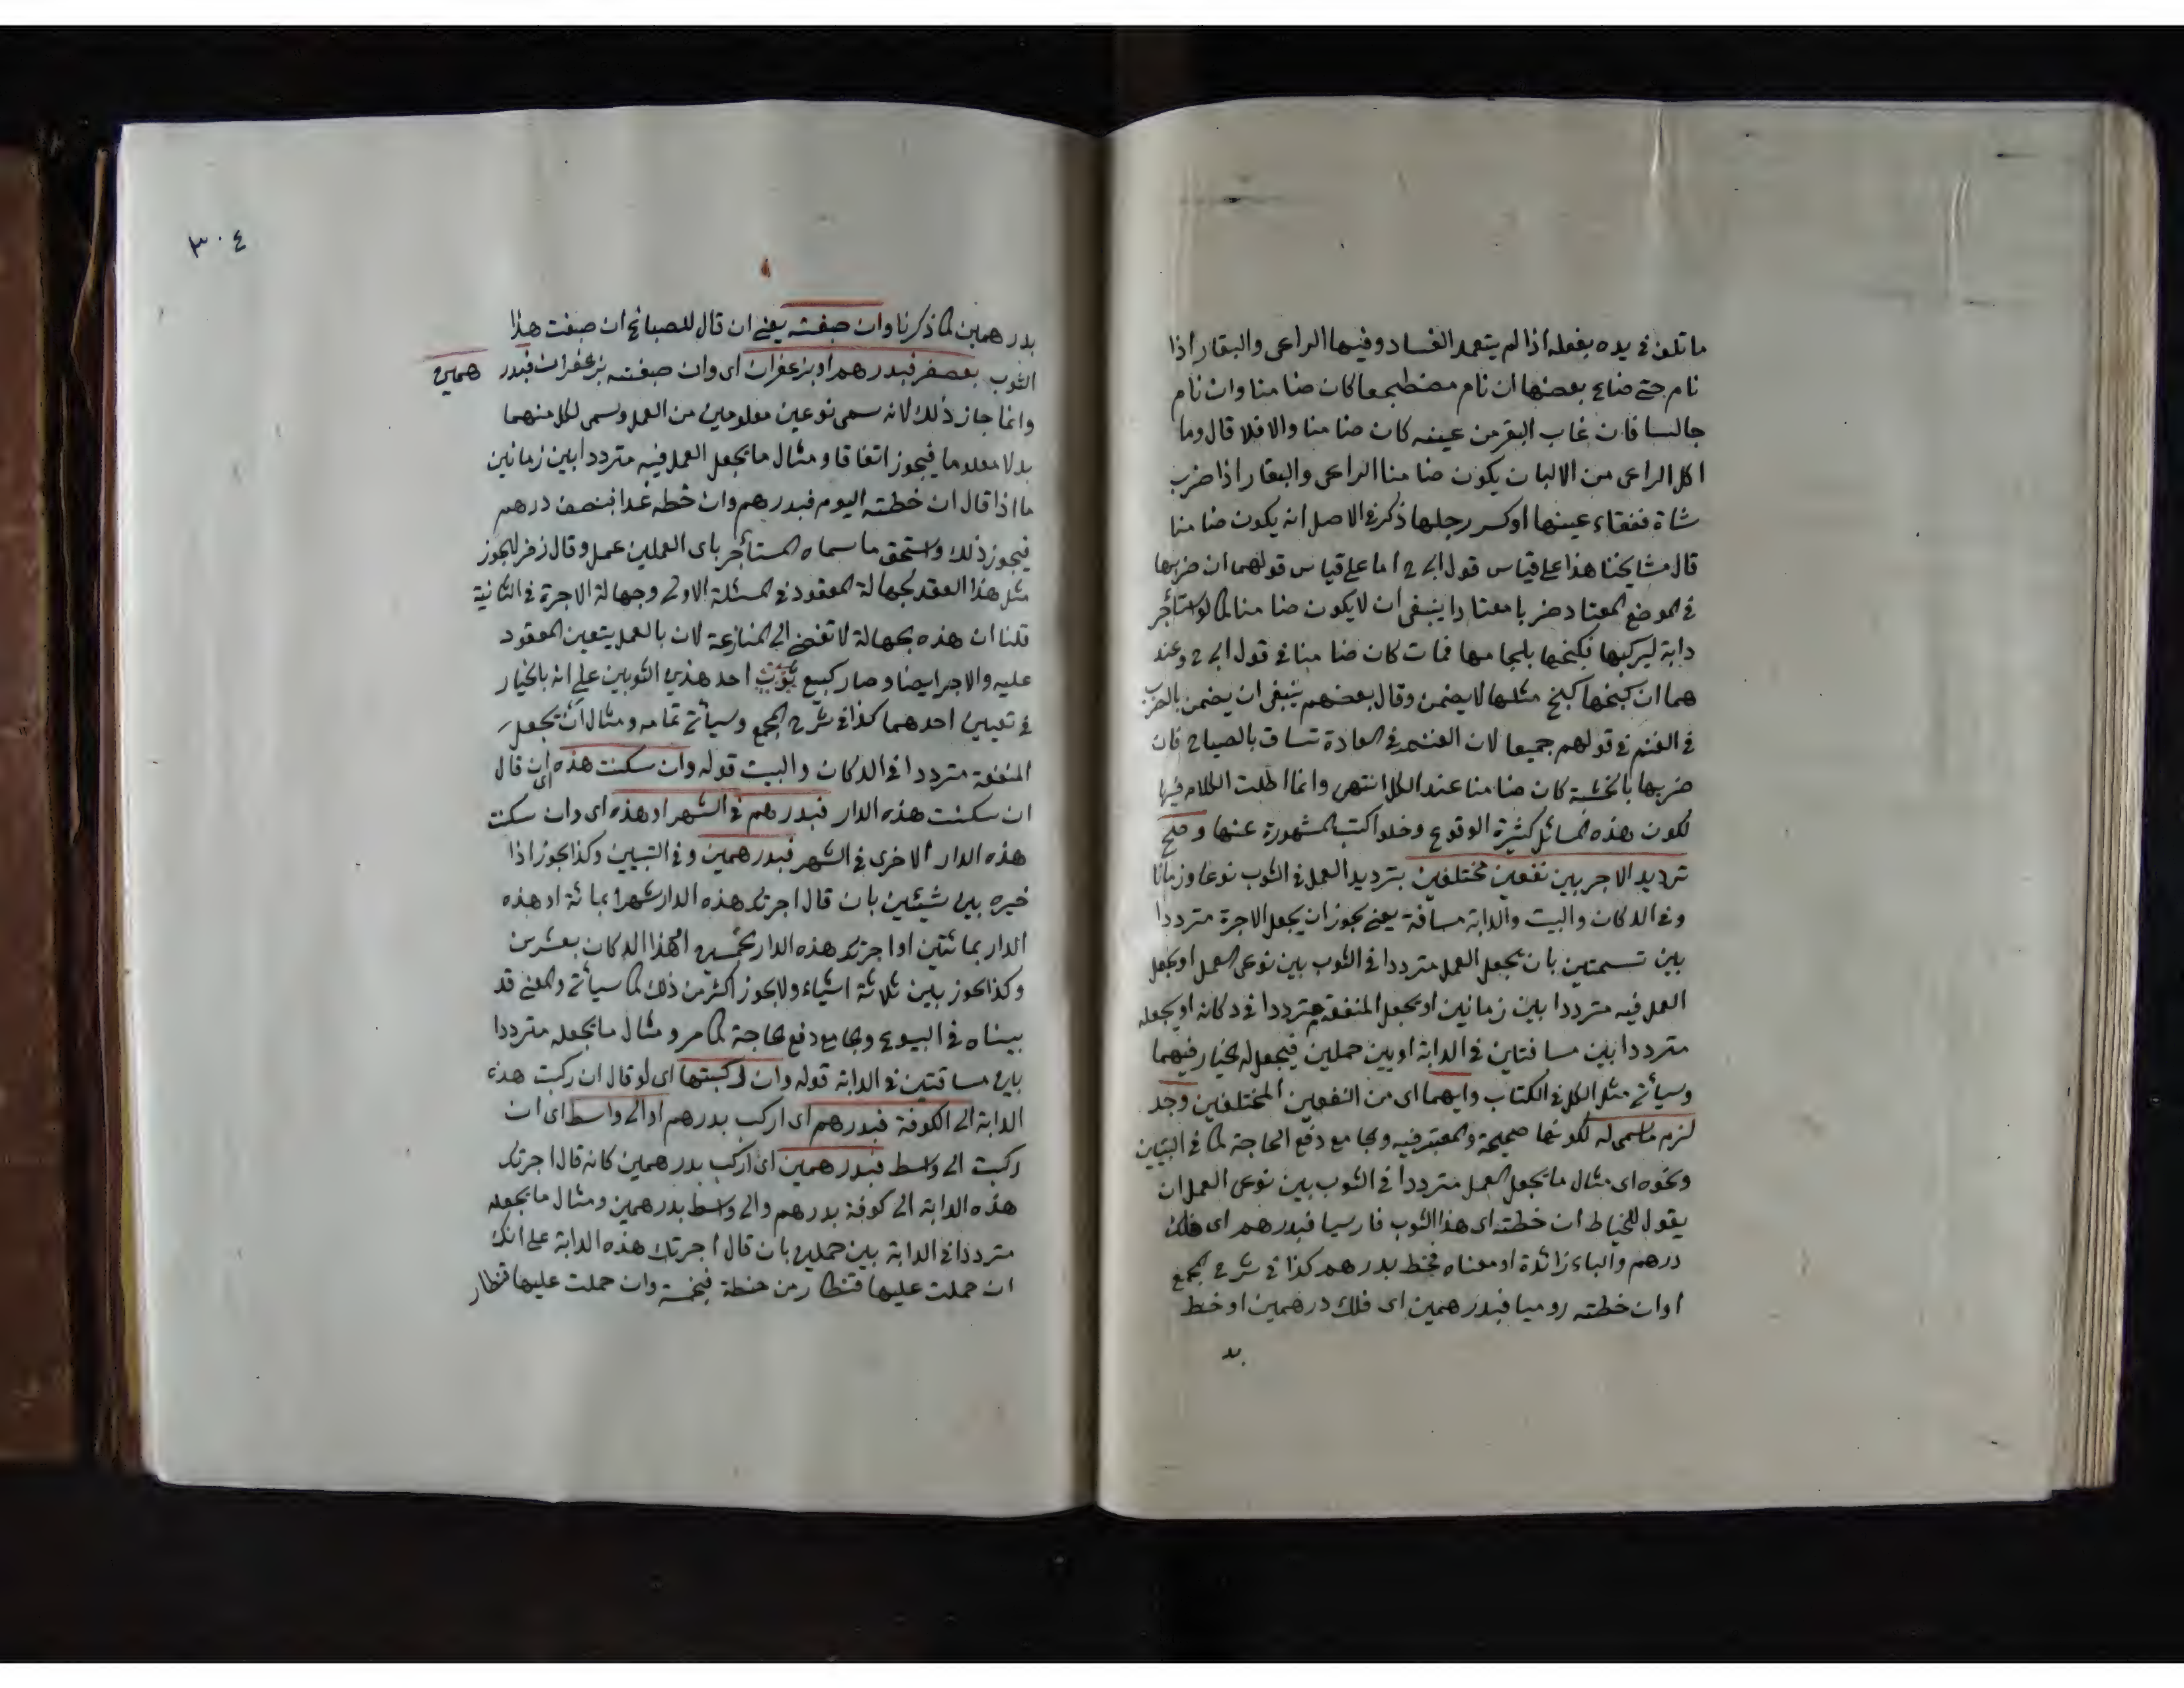 ما تلف فى يده بفعله اذا لم يتعمد الفساد وفيها الراعى والبقار اذا
نام حتى ضاع بعضها ان نام مضطجعا كان ضامنا وان نام
جالسا فان غاب البقر من عينه كان ضامنا والا فلا قال وما
اكل الراعى من الالبان يكون ضامنا الراعى والبقار اذا ضرب
شاة ففقاء عينها او كسر رجلها ذكر فى الاصل انه يكون ضامنا
قال مشايخنا هذا على قياس قول ابى ح اما على قياس قولهما ان ضربها
فى الموضع المعتاد ضربا معتادا ينبغى ان لا يكون ضامنا كما لو استأجر
دابة ليركبها فكبحها بلجامها فماتت كان ضامنا فى قول ابى ح وعند
هما ان كبحها كبح مثلها لا يضمن وقال بعضهم ينبغى ان يضمن بالضرب
فى الغنم فى قولهم جميعا لان الغنم فى العادة تساق بالصياح فان
ضربها بالخشبة كان ضامنا عند الكل انتهى وانما اطلت الكلام فيها
لكون هذه المسائل كثيرة الوقوع وخلوا كتب المشهورة عنها وصح
ترديد الاجر بين نفعين مختلفين بترديد العمل فى الثوب نوعا وزمانا
وفى الدكان والبيت والدابة مسافة يعنى يجوز ان يجعل الاجرة مترددا
بين تسمتين بان يجعل العمل مترددا فى الثوب بين نوعى العمل او يجعل
العمل فيه مترددا بين زمانين او يجعل المنفعة مترددا فى دكانه او يجعله
مترددا بين مسافتين فى الدابة او بين حملين فيجعل له الخيار فيهما
وسيأتى مثل الكل فى الكتاب وايهما اى من النفعين المختلفين وجد
لزم ما سمى له لكونها صحيحة والمعتبر فيه وبجامع دفع الحاجة كما فى التبيين
ونحوه اى مثال ما يجعل العمل مترددا فى الثوب بين نوعى العمل ان
يقول للخياط ان خطته اى هذا الثوب فارسيا فبدرهم اى فلك
درهم والباء زائدة او معناه فخط بدرهم كذا فى شرح المجمع
او ان خطته روميا فبدرهمين اى فلك درهمين او خط
بد
٣٠٤
بدرهمين كما ذكرنا وان صبغته يعنى ان قال للصباغ ان صبغت هذا
الثوب بعصفر فبدرهم او بزعفران اى وان صبغته بزعفران فبدر همين
وانما جاز ذلك لانه سمى نوعين معلومين من العمل وسمى لكل منهما
بدلا معلوما فيجوز اتفاقا ومثال ما يجعل العمل فيه مترددا بين زمانين
ما اذا قال ان خطته اليوم فبدرهم وان خطه غدا فبنصف درهم
فيجوز ذلك واستحق ما سماه المستأجر باى العملين عمل وقال زفر لا يجوز
مثل هذا العقد لجهالة المعقود فى المسئلة الاولى وجهالة الاجرة فى الثانية
قلنا ان هذه الجهالة لا تفضى الى المنازعة لان بالعمل يتعين المعقود
عليه والاجر ايضا وصار كبيع ثوب احد هذين الثوبين على انه بالخيار
فى تعيين احدهما كذا فى شرح المجمع وسيأتى تمامه ومثال ان يجعل
المنفعة مترددا فى الدكان والبيت قوله وان سكنت هذه اى ان قال
ان سكنت هذه الدار فبدرهم فى الشهر او هذه اى وان سكنت
هذه الدار الاخرى فى الشهر فبدرهمين وفى التبيين وكذا يجوز اذا
خيره بين شيئين بان قال اجرتك هذه الدار شهرا بمائة او هذه
الدار بمائتين او اجرتك هذه الدار بخمسين او هذا الدكان بعشرين
وكذا يجوز بين ثلاثة اشياء ولا يجوز اكثر من ذلك كما سيأتى والمعنى قد
بيناه فى البيوع وبجامع دفع الحاجة كما مر ومثال ما يجعله مترددا
بين مسافتين فى الدابة قوله وان ركبتها اى لو قال ان ركبت هذه
الدابة الى الكوفة فبدرهم اى اركب بدرهم او الى واسط اى ان
ركبت الى واسط فبدرهمين اى اركب بدرهمين كانه قال اجرتك
هذه الدابة الى كوفة بدرهم والى واسط بدرهمين ومثال ما يجعله
مترددا فى الدابة بين حملين بان قال اجرتك هذه الدابة على انك
ان حملت عليها قنطار من حنطة فبخمسة وان حملت عليها قنطار